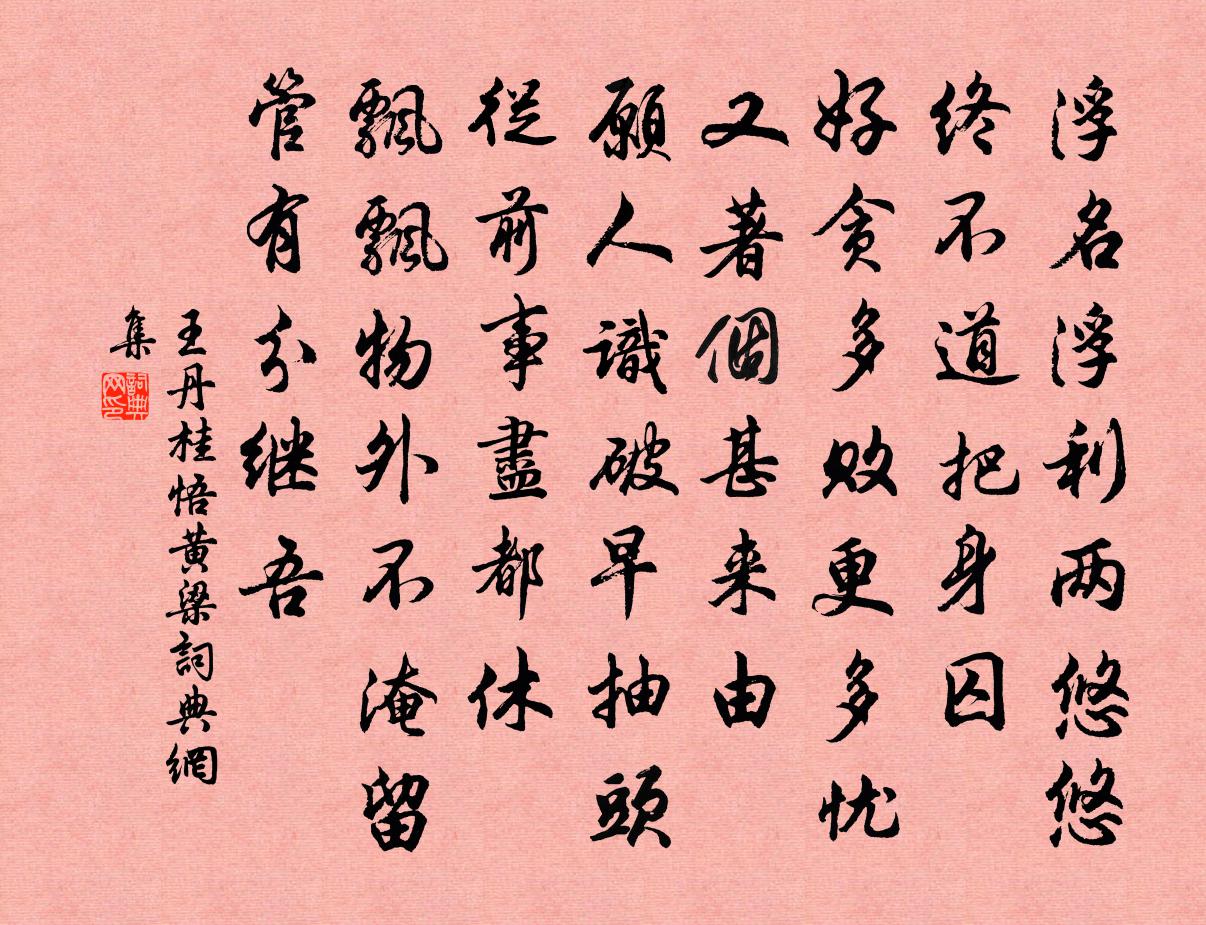 浮名浮利两悠悠
终不道把身囚
好贪多败更多忧
又著個甚来由
願人識破早抽頭
從前事盡都休
飄飄物外不淹留
管有分继吾
王丹桂悟黄梁詞典網
集
詞典網印